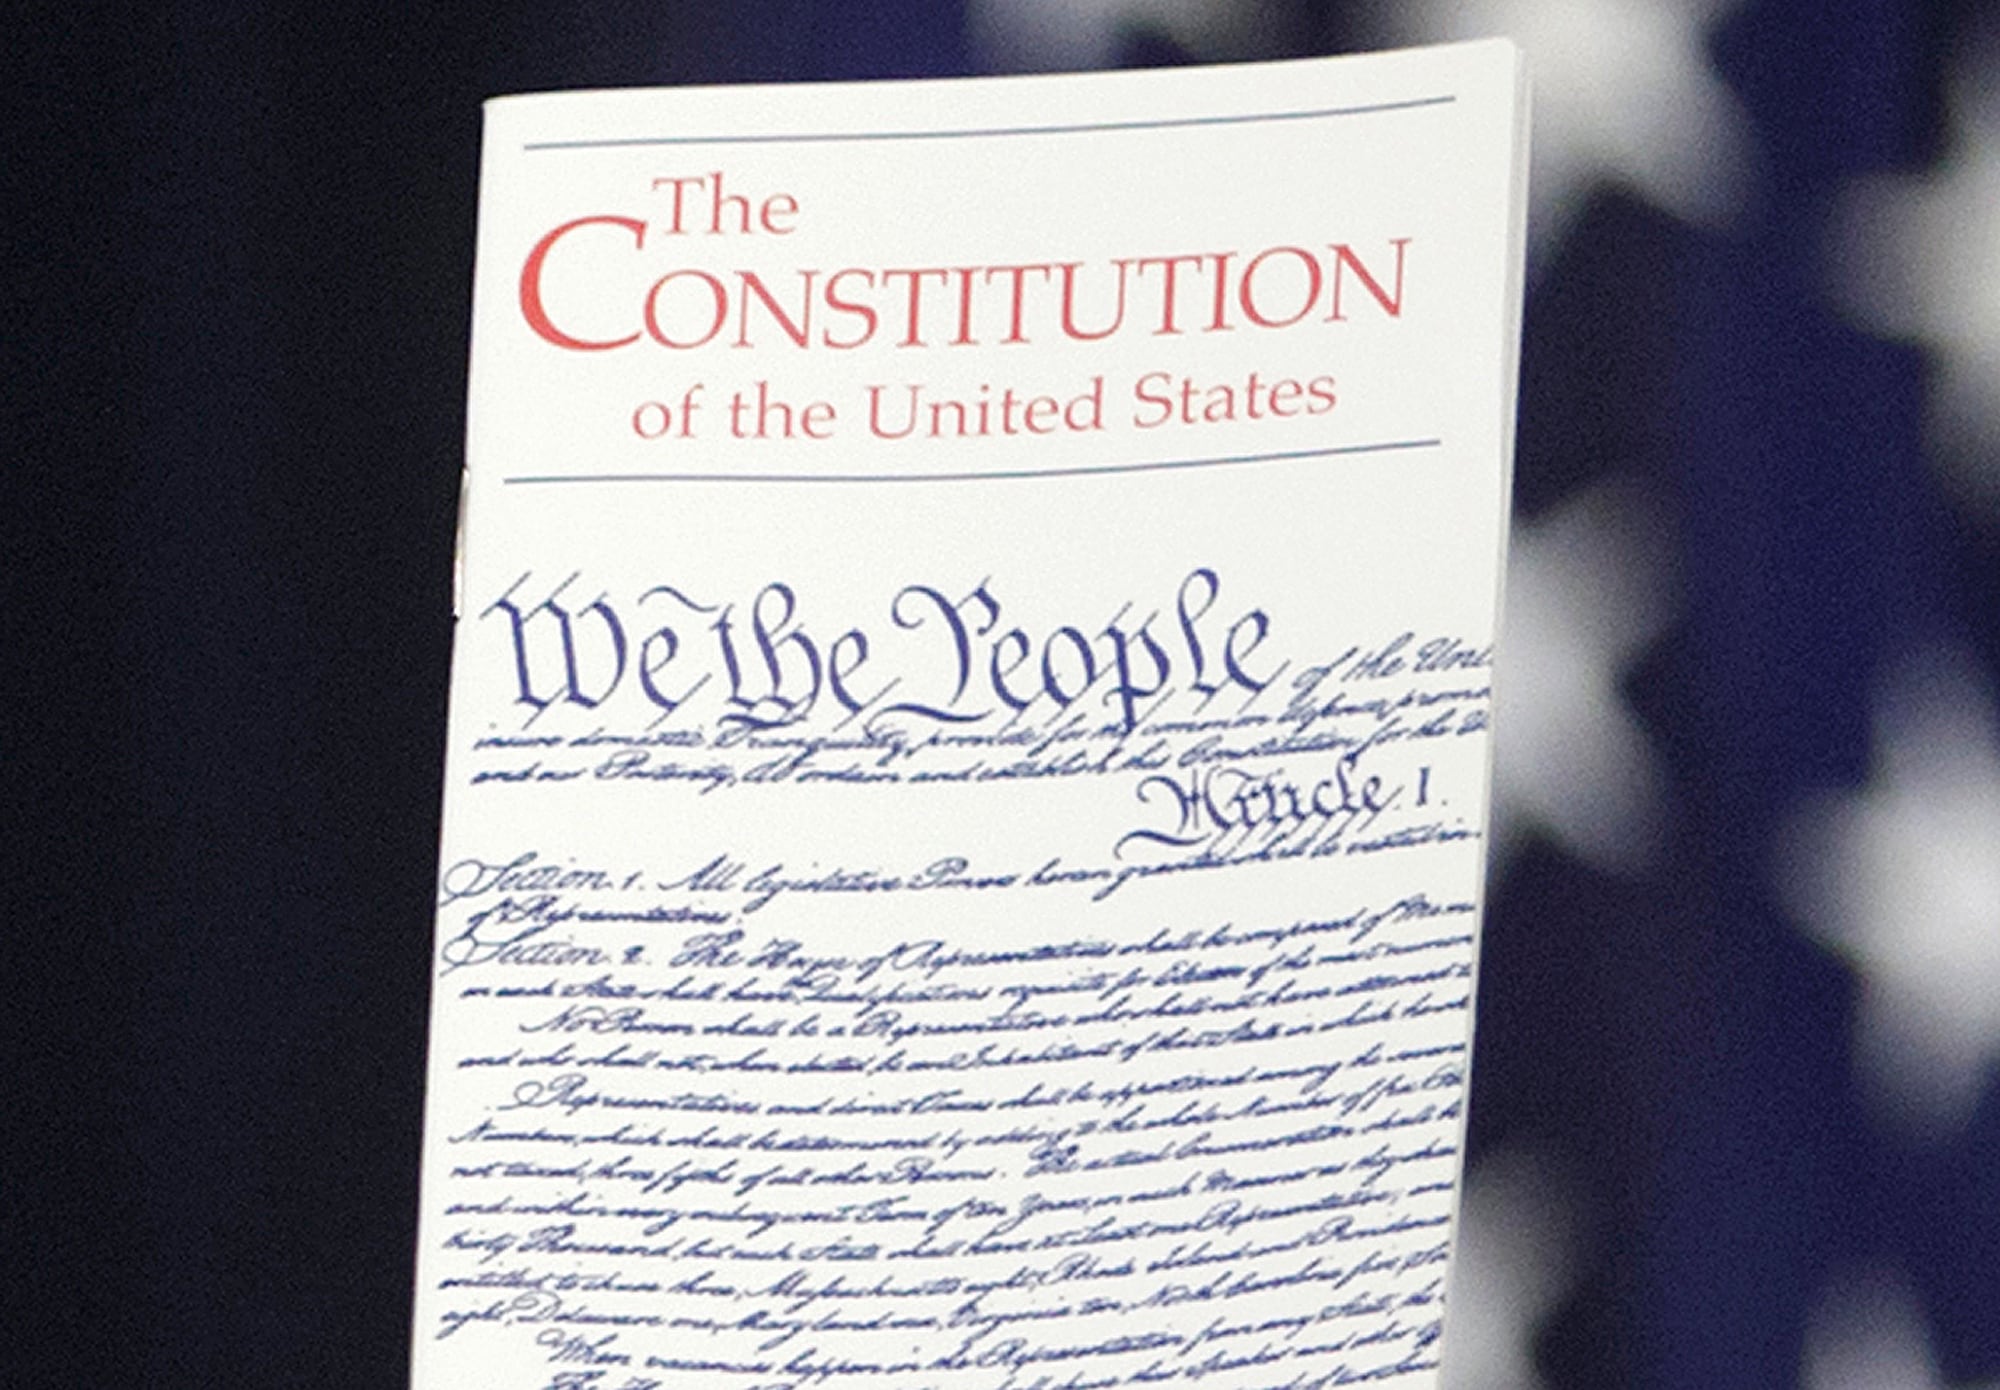 The
CONSTITUTION
of the United States
We the People of the Uni
insure domestic Tranquility, provide for the common defence, promo
and our Posterity, do ordain and establish this Constitution for the U
Article. I.
Section. 1. All legislative Powers herein granted shall be vested in
of Representatives.
Section. 2. The House of Representatives shall be composed of Mem
in each State shall have Qualifications requisite for Electors of the most numero
No Person shall be a Representative who shall not have attained t
and who shall not, when elected, be an Inhabitant of that State in which
Representatives and direct Taxes shall be apportioned among the several
Numbers, which shall be determined by adding to the whole Number of free
not taxed, three fifths of all other Persons. The actual Enumeration shall be
and within every subsequent Term of ten Years, in such Manner as they shall
thirty Thousand, but each State shall have at Least one Representative; and
entitled to chuse three, Massachusetts eight, Rhode Island and Providence
eight, Delaware one, Maryland six, Virginia ten, North Carolina five,
When vacancies happen in the Representation from any State, the
Speaker and other